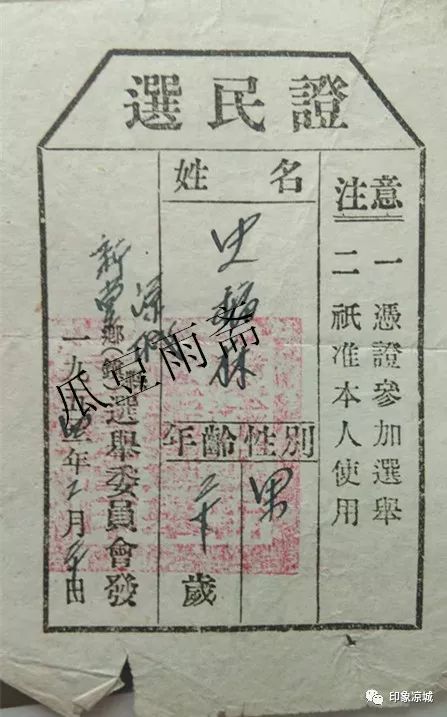 選民證
注意
一 憑證參加選舉
二 祇准本人使用
姓名
史 林
年齡 性別
男
歲
涼城縣
新堂鄉(鎮)選舉委員會發
一九 年 月 日
瓜豆雨斋
印象凉城